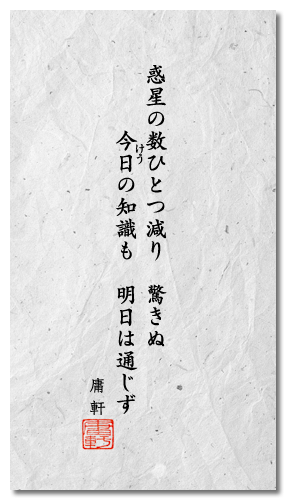 惑星の数ひとつ減り　驚きぬ
今日の知識も　明日は通じず
けう
庸軒